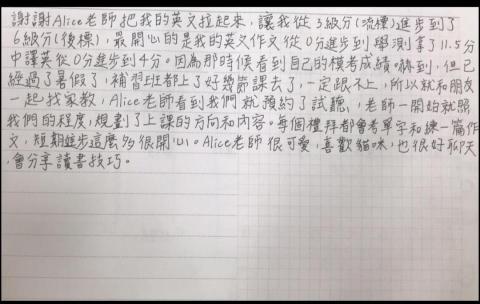 謝謝Alice老師把我的英文拉起來，讓我從3級分(流標)進步到了
6級分(後標)，最開心的是我的英文作文從0分進步到學測拿了11.5分
中譯英從0分進步到4分。因為那時候看到自己的模考成績嚇到，但已
經過了暑假了，補習班都上了好幾節課去了，一定跟不上，所以就和朋友
一起找家教，Alice老師看到我們就預約了試聽，老師一開始就照
我們的程度，規劃了上課的方向和內容。每個禮拜都會考單字和練一篇作
文，短期進步這麼多很開心。Alice老師很可愛，喜歡貓咪，也很好聊天
，會分享讀書技巧。